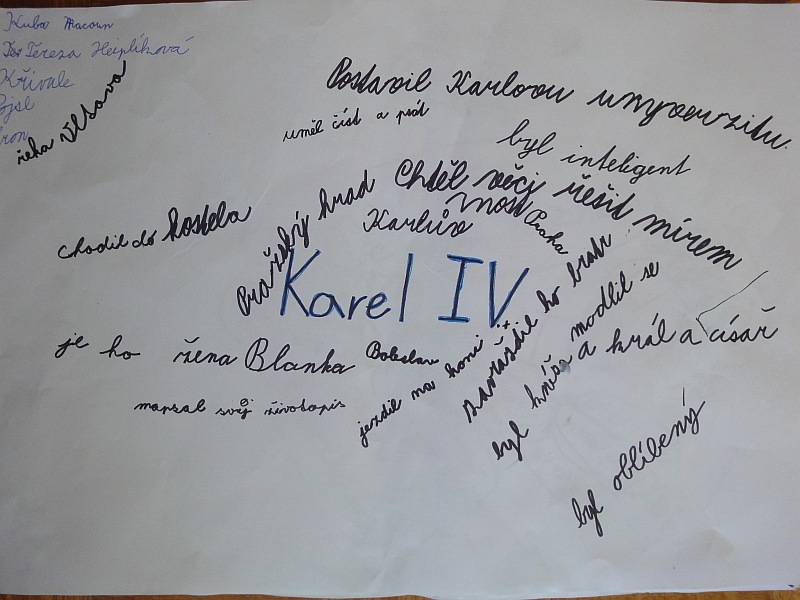 Kuba Macoun
Tereza Hejplíková
Křivale
řeka Vltava
Postavil Karlovu unyverzitu.
uměl číst a psát
byl inteligent
Chtěl věci řešit mírem
Pražský hrad
Karlův most
Praha
chodil do kostela
Karel IV
je ho žena Blanka
Boleslav
napsal svůj životopis
jezdil na koni
zavraždil ho bratr
modlil se
byl kníže a král a císař
byl oblíbený